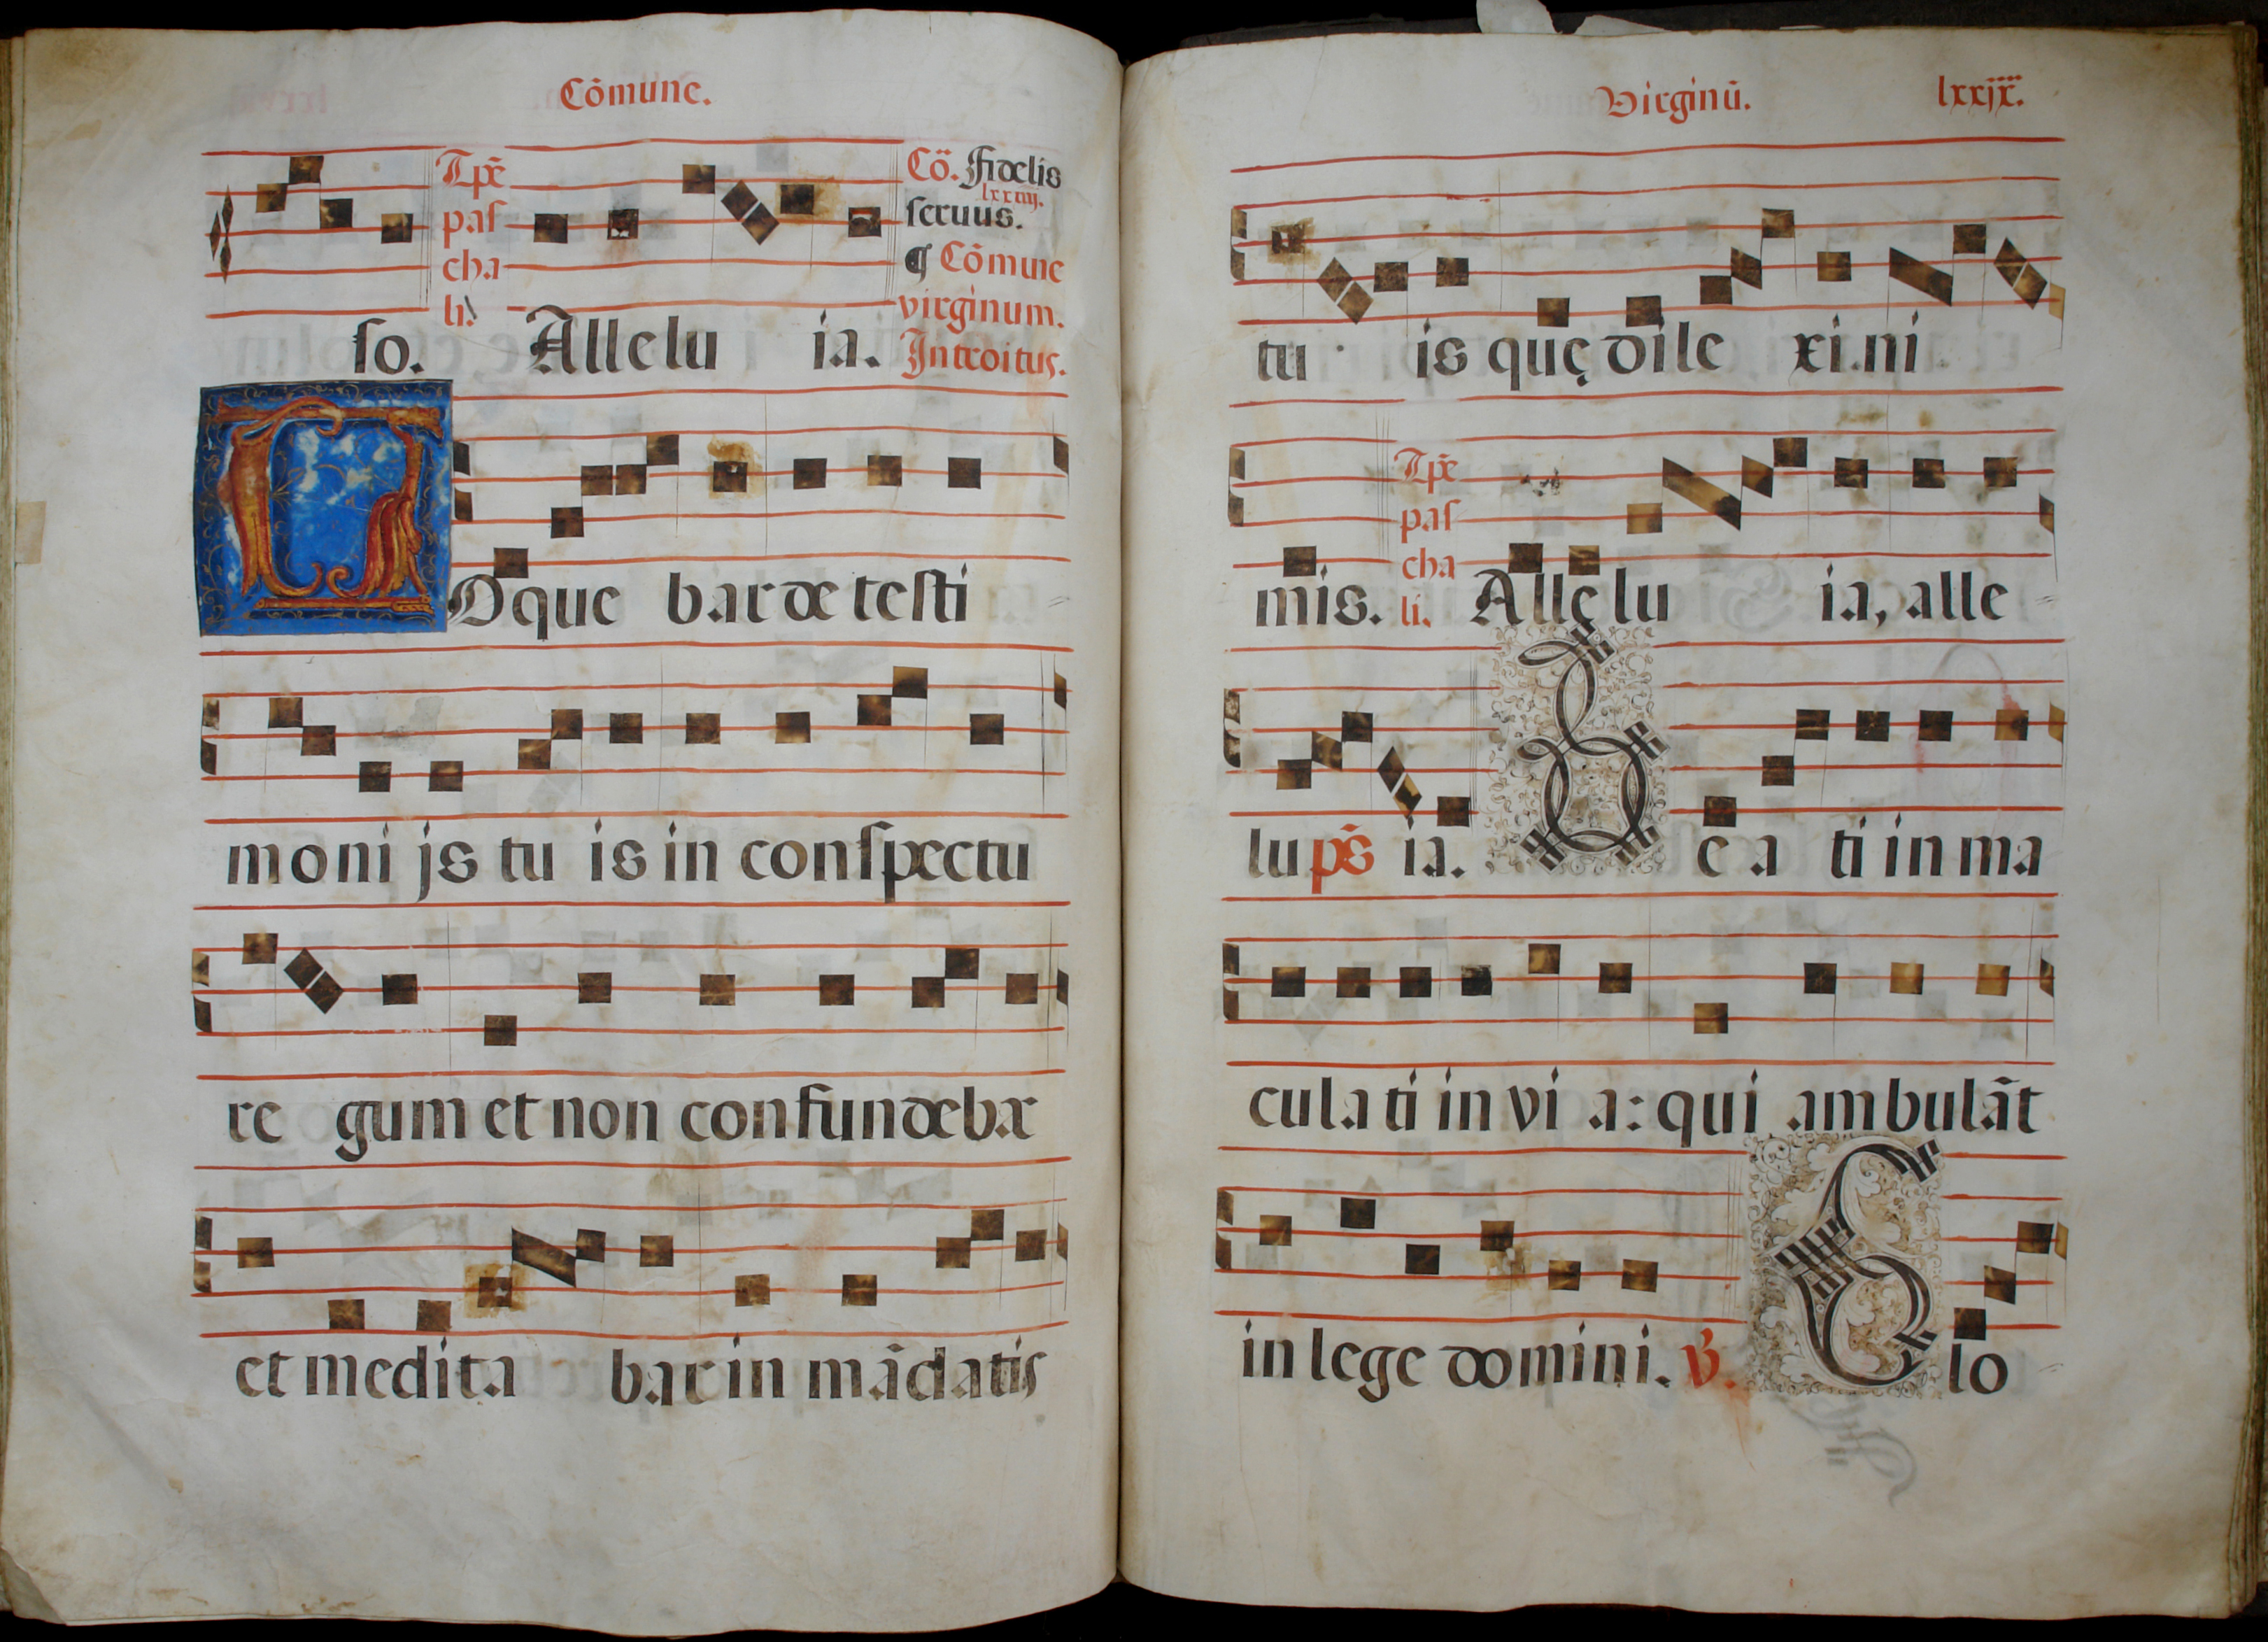 Cõmune.
Tpẽ
pas
cha
li.
Cõ. Fidelis
lxxiiij.
seruus.
¶ Cõmune
virginum.
so. Allelu ia. Introitus.
LOque bar de testi
moni js tu is in conspectu
re gum et non confundebar
et medita bar in mãdatis
Virginũ. lxxix.
tu is quę dile xi. ni
Tpẽ
pas
cha
mis. li. Allęlu ia, alle
lu ps̃ ia. Be a ti in ma
cula ti in vi a: qui ambulãt
in lege domini. ℣. Glo